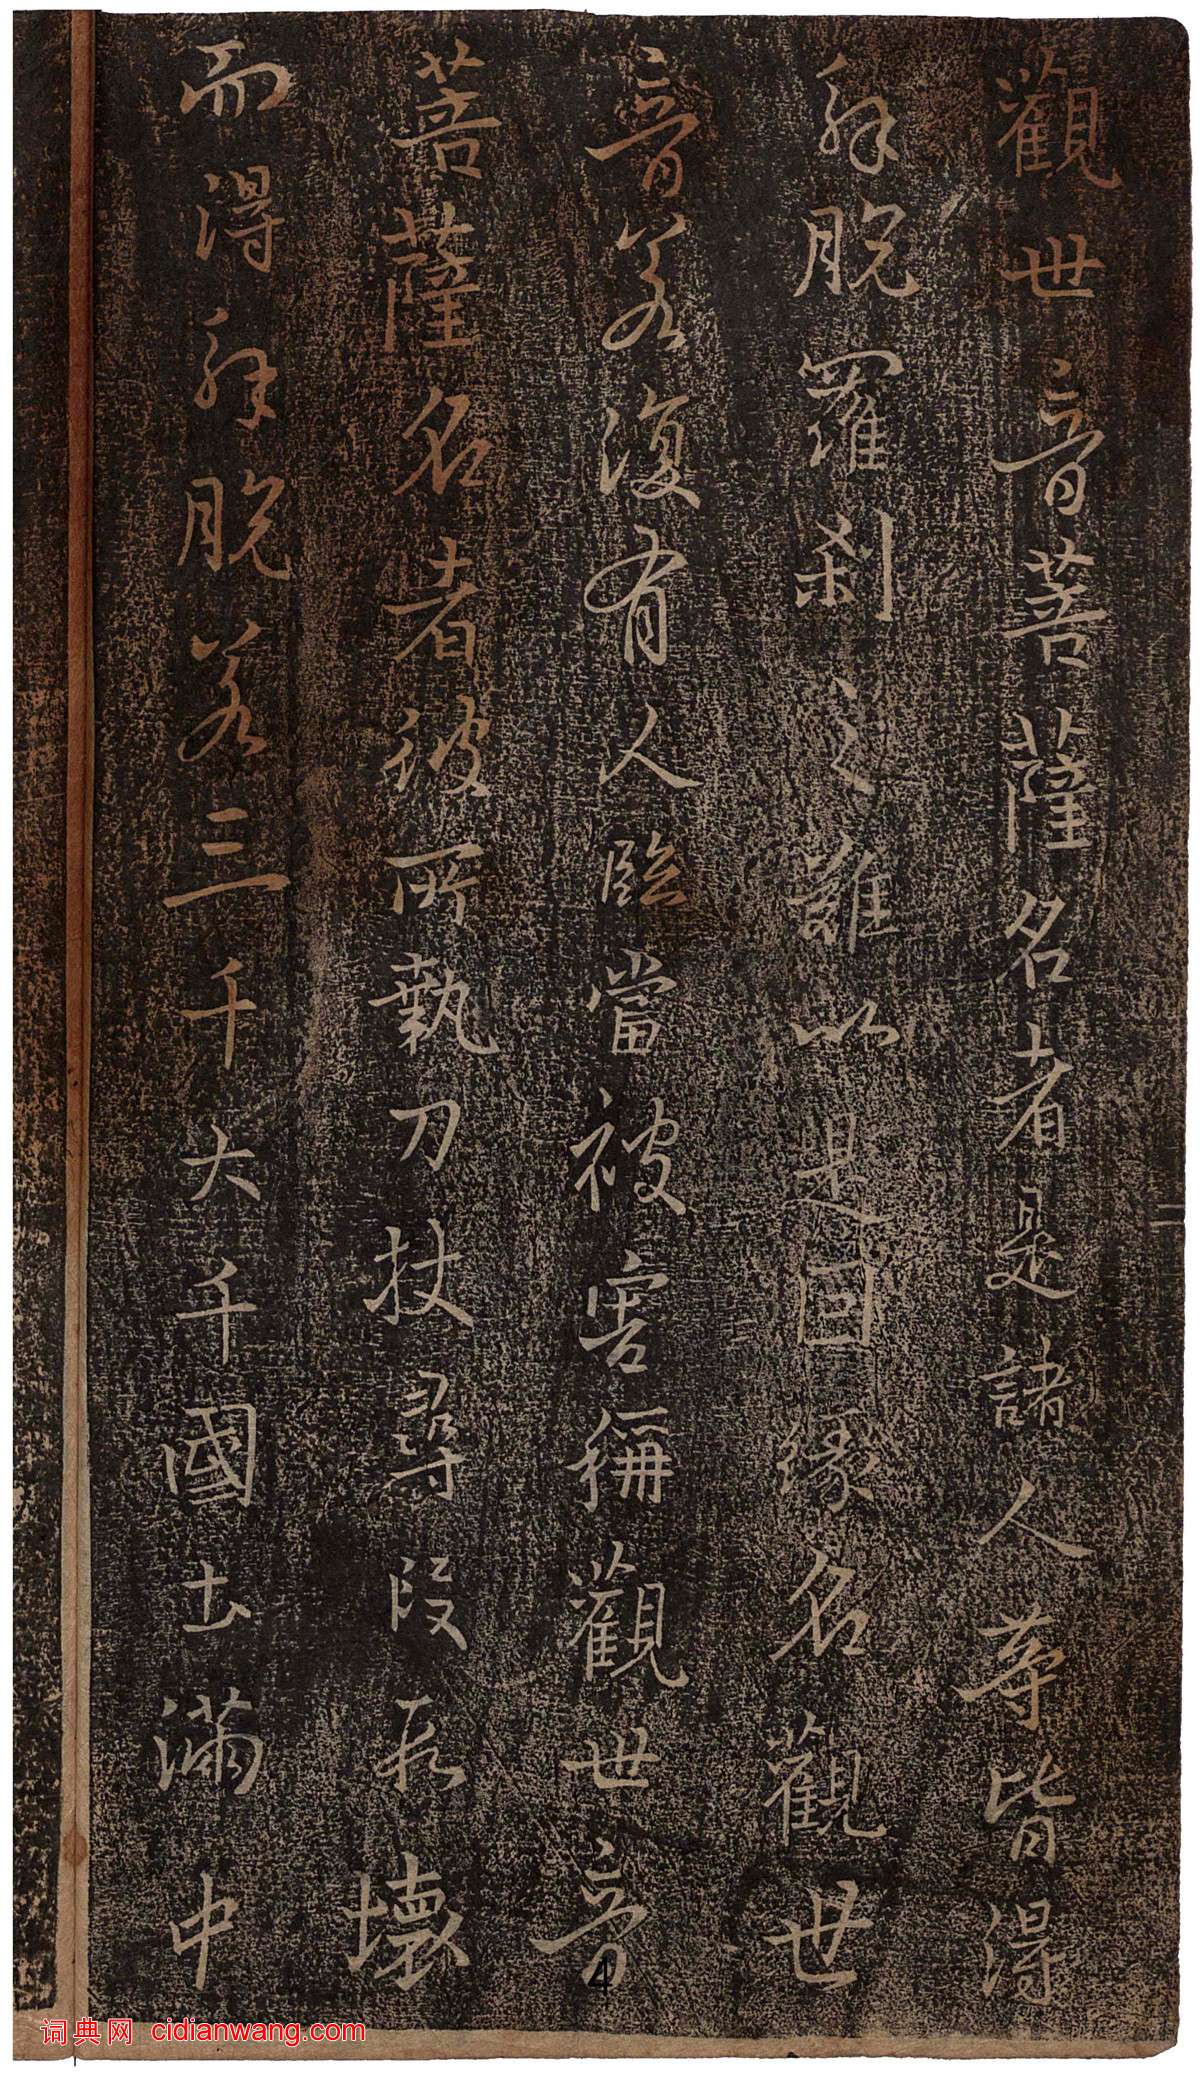 觀世音菩薩名者是諸人等皆得
解脫羅剎之難以是因緣名觀世
音若復有人臨當被害稱觀世音
菩薩名者彼所執刀杖尋段段壞
而得解脫若三千大千國土滿中
二
4
词典网 cidianwang.com